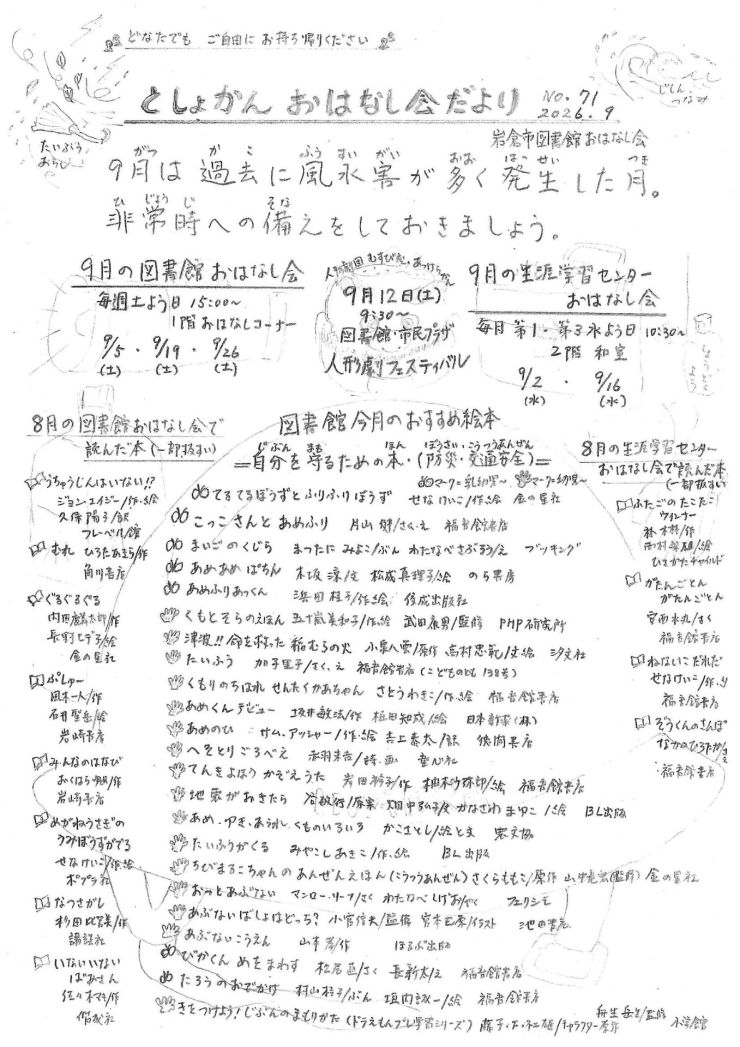 どなたでも ご自由に お持ち帰りください
としょかん おはなし会だより No.71
2026.9
たいふう
じしん
つなみ
岩倉市図書館おはなし会
9月は過去に風水害が多く発生した月。
非常時への備えをしておきましょう。
9月の図書館おはなし会
毎週土よう日 15:00~
1階おはなしコーナー
9/5・9/19・9/26
(土) (土) (土)
9月12日(土)
9:30~
図書館・市民プラザ
人形劇フェスティバル
9月の生涯学習センター
おはなし会
毎月第1・第3水よう日 10:30~
2階 和室
9/2・9/16
(水) (水)
8月の図書館おはなし会で
読んだ本(一部抜すい)
うちゅうじんはいない!?
ジョン・エイジー/作・絵
久保陽子/訳
フレーベル館
むれ ひろたあきら/作
角川書店
ぐるぐるぐる
内田麟太郎/作
長野ヒデ子/絵
金の星社
ぷしゅー
風木一人/作
石井聖岳/絵
岩崎書店
みんなのはなび
おくはら/作
岩崎書店
めがねうさぎの
うみぼうずがでる
せなけいこ/作・絵
ポプラ社
なつさがし
杉田比呂美/作
講談社
いないいない
ばあさん
佐々木マキ/作
偕成社
図書館今月のおすすめ絵本
=自分を守るための本・(防災・交通安全)=
マーク=乳幼児~ マーク=幼児~
てるてるぼうずとふりふりぼうず せなけいこ/作・絵 金の星社
こっこさんとあめふり 片山健/さく・え 福音館書店
まいごのくじら まつたにみよこ/ぶん わたなべさぶろう/え ブッキング
あめあめぱちん 木坂涼/文 松成真理子/絵 のら書房
あめふりあっくん 浜田桂子/作・絵 佼成出版社
くもとそらのえほん 五十嵐美和子/作・絵 武田康男/監修 PHP研究所
津波!!命を救った稲むらの火 小泉八雲/原作 高村忠範/文・絵 汐文社
たいふう 加古里子/さく・え 福音館書店(こどものとも138号)
くもりのちはれ せんたくかあちゃん さとうわきこ/作・絵 福音館書店
あめくんデビュー 坂井敏法/作 植田知成/絵 日本新薬(株)
あめのひ サム・アッシャー/作・絵 吉上恭太/訳 徳間書店
へそとりごろべえ 赤羽末吉/詩・画 童心社
てんきよほう かぞえうた 岸田衿子/作 柚木沙弥郎/絵 福音館書店
地震がおきたら 谷敏行/原案 畑中弘子/文 かなざわまゆこ/絵 BL出版
あめ・ゆき・あられ くものいろいろ かこさとし/絵と文 農文協
たいふうがくる みやこしあきこ/作・絵 BL出版
ちびまるこちゃんのあんぜんえほん(こうつうあんぜん) さくらももこ/原作 金の星社
おっとあぶない マンロー・リーフ/さく わたなべしげお/やく フェリシモ
あぶないばしょはどっち? 小宮信夫/監修 イラスト 池田書店
あぶないこうえん 山本孝/作 ほるぷ出版
ぴかくん めをまわす 松居直/さく 長新太/え 福音館書店
たろうのおでかけ 村山桂子/ぶん 堀内誠一/絵 福音館書店
きをつけよう!じぶんのまもりかた(ドラえもんプレ学習シリーズ) 藤子・F・不二雄/キャラクター原作 小学館
8月の生涯学習センター
おはなし会で読んだ本
(一部抜すい)
ふたごのたこたこ
ウィンナー
林木林/作
西村敏雄/絵
ひさかたチャイルド
がたんごとん
がたんごとん
安西水丸/さく
福音館書店
ねないこだれだ
せなけいこ/作・え
福音館書店
ぞうくんのさんぽ
なかのひろたか/作・え
福音館書店